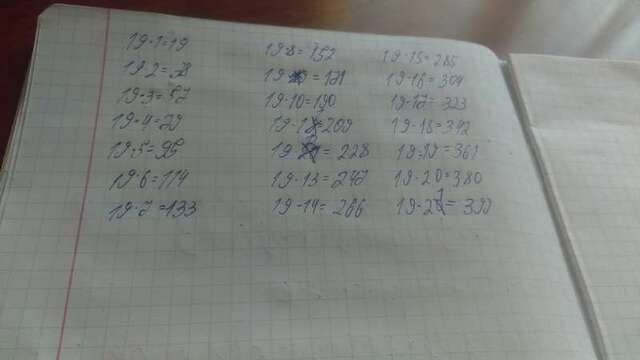 19·1=19
19·2=38
19·3=57
19·4=79
19·5=95
19·6=114
19·7=133
19·8=152
19·9=171
19·10=190
19·11=209
19·12=228
19·13=247
19·14=266
19·15=285
19·16=304
19·17=323
19·18=342
19·19=361
19·20=380
19·21=399